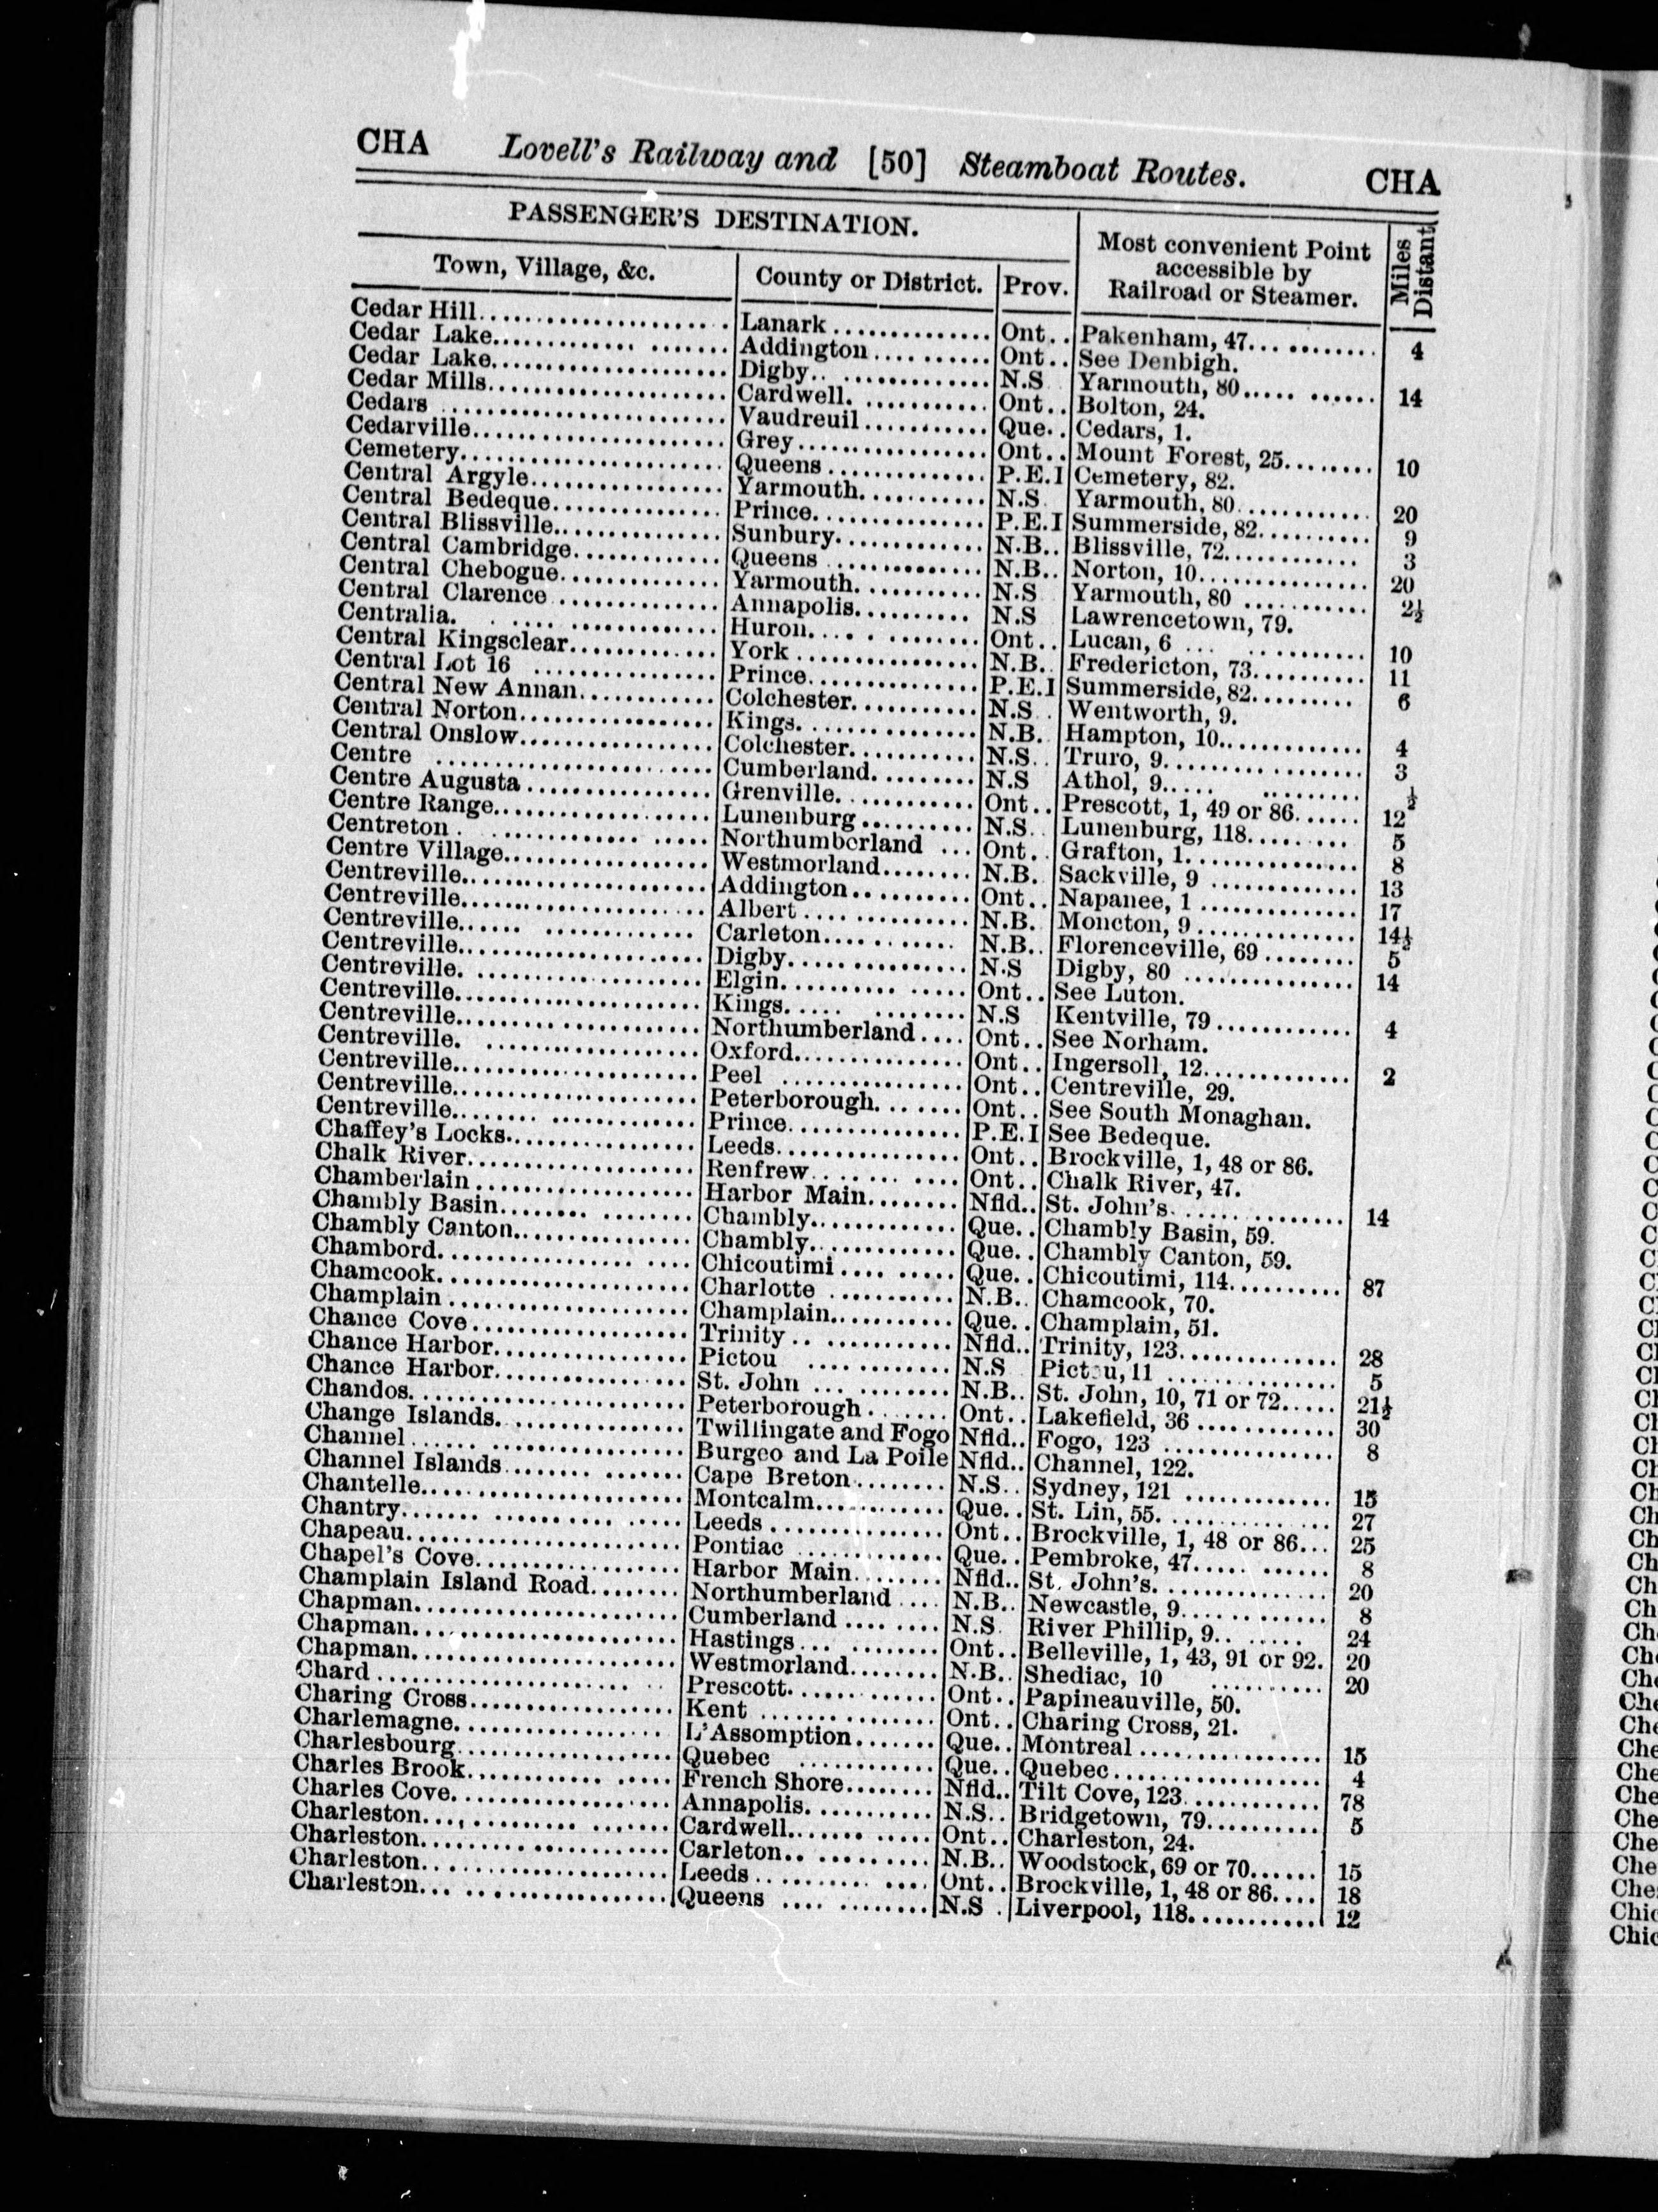 CHA Lovell's Railway and [50] Steamboat Routes. CHA
PASSENGER'S DESTINATION. Most convenient Point accessible by Railroad or Steamer. Miles Distant
Town, Village, &c. County or District. Prov.
Cedar Hill Lanark Ont.. Pakenham, 47 4
Cedar Lake Addington Ont.. See Denbigh.
Cedar Lake Digby N.S Yarmouth, 80 14
Cedar Mills Cardwell Ont.. Bolton, 24.
Cedars Vaudreuil Que.. Cedars, 1.
Cedarville Grey Ont.. Mount Forest, 25 10
Cemetery Queens P.E.I Cemetery, 82.
Central Argyle Yarmouth N.S. Yarmouth, 80 20
Central Bedeque Prince P.E.I Summerside, 82 9
Central Blissville Sunbury N.B.. Blissville, 72 3
Central Cambridge Queens N.B.. Norton, 10 20
Central Chebogue Yarmouth N.S Yarmouth, 80 2½
Central Clarence Annapolis N.S Lawrencetown, 79.
Centralia Huron Ont.. Lucan, 6 10
Central Kingsclear York N.B.. Fredericton, 73 11
Central Lot 16 Prince P.E.I Summerside, 82 6
Central New Annan Colchester N.S.. Wentworth, 9.
Central Norton Kings N.B. Hampton, 10 4
Central Onslow Colchester N.S.. Truro, 9 3
Centre Cumberland N.S Athol, 9 ½
Centre Augusta Grenville Ont.. Prescott, 1, 49 or 86 12
Centre Range Lunenburg N.S.. Lunenburg, 118 5
Centreton Northumberland Ont.. Grafton, 1 8
Centre Village Westmorland N.B. Sackville, 9 13
Centreville Addington Ont.. Napanee, 1 17
Centreville Albert N.B. Moncton, 9 14½
Centreville Carleton N.B.. Florenceville, 69 5
Centreville Digby N.S Digby, 80 14
Centreville Elgin Ont.. See Luton.
Centreville Kings N.S Kentville, 79 4
Centreville Northumberland Ont.. See Norham.
Centreville Oxford Ont.. Ingersoll, 12 2
Centreville Peel Ont.. Centreville, 29.
Centreville Peterborough Ont.. See South Monaghan.
Centreville Prince P.E.I See Bedeque.
Chaffey's Locks Leeds Ont.. Brockville, 1, 48 or 86.
Chalk River Renfrew Ont.. Chalk River, 47.
Chamberlain Harbor Main Nfld.. St. John's 14
Chambly Basin Chambly Que.. Chambly Basin, 59.
Chambly Canton Chambly Que.. Chambly Canton, 59.
Chambord Chicoutimi Que.. Chicoutimi, 114 87
Chamcook Charlotte N.B.. Chamcook, 70.
Champlain Champlain Que.. Champlain, 51.
Chance Cove Trinity Nfld.. Trinity, 123 28
Chance Harbor Pictou N.S Pictou, 11 5
Chance Harbor St. John N.B.. St. John, 10, 71 or 72 21½
Chandos Peterborough Ont.. Lakefield, 36 30
Change Islands Twillingate and Fogo Nfld.. Fogo, 123 8
Channel Burgeo and La Poile Nfld.. Channel, 122.
Channel Islands Cape Breton N.S.. Sydney, 121 15
Chantelle Montcalm Que.. St. Lin, 55 27
Chantry Leeds Ont.. Brockville, 1, 48 or 86 25
Chapeau Pontiac Que.. Pembroke, 47 8
Chapel's Cove Harbor Main Nfld.. St. John's 20
Champlain Island Road Northumberland N.B.. Newcastle, 9 8
Chapman Cumberland N.S. River Phillip, 9 24
Chapman Hastings Ont.. Belleville, 1, 43, 91 or 92. 20
Chapman Westmorland N.B.. Shediac, 10 20
Chard Prescott Ont.. Papineauville, 50.
Charing Cross Kent Ont.. Charing Cross, 21.
Charlemagne L'Assomption Que.. Montreal 15
Charlesbourg Quebec Que.. Quebec 4
Charles Brook French Shore Nfld.. Tilt Cove, 123 78
Charles Cove Annapolis N.S.. Bridgetown, 79 5
Charleston Cardwell Ont.. Charleston, 24.
Charleston Carleton N.B.. Woodstock, 69 or 70 15
Charleston Leeds Ont.. Brockville, 1, 48 or 86 18
Charleston Queens N.S. Liverpool, 118 12